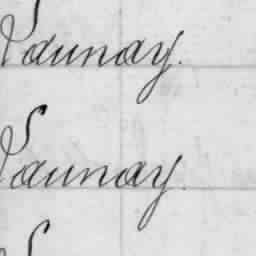 Launay.
Launay.